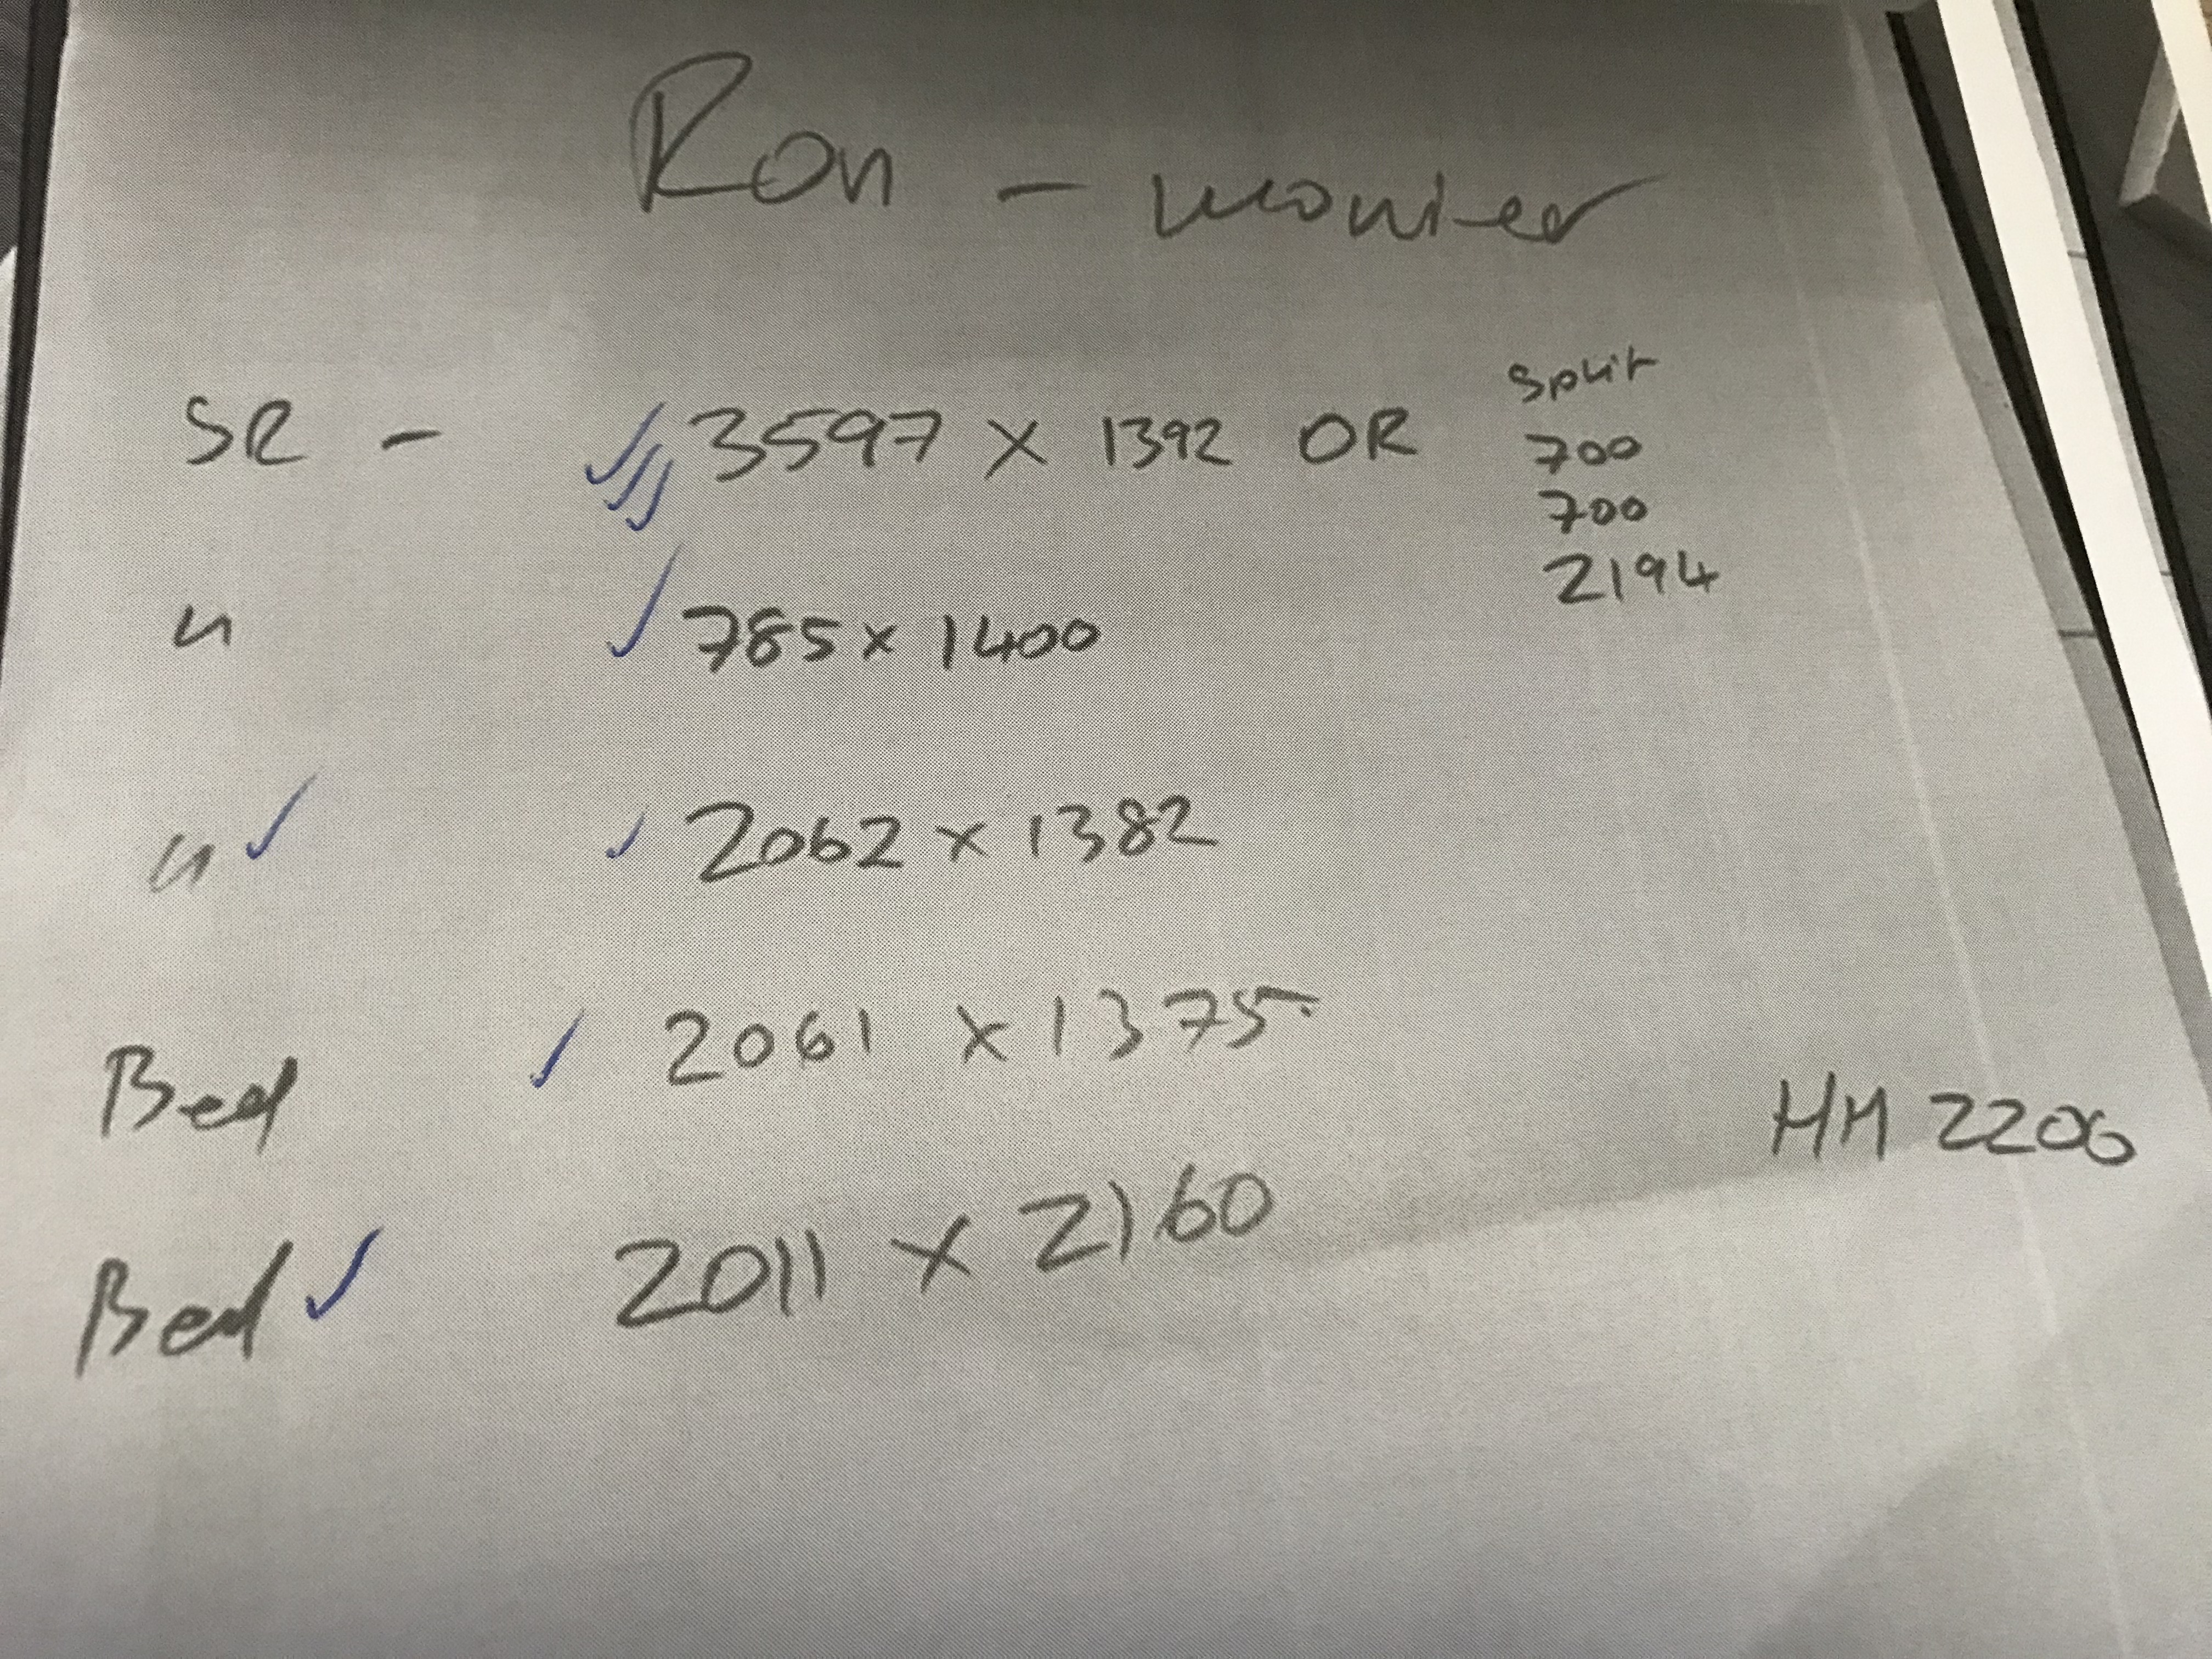 Ron -
SR - ✓✓✓ 3597 x 1392 OR
split
700
700
2194
" ✓ 785 x 1400
" ✓ ✓ 2062 x 1382
Bed ✓ 2061 x 1375
HM 2206
Bed ✓ 2011 x 2160